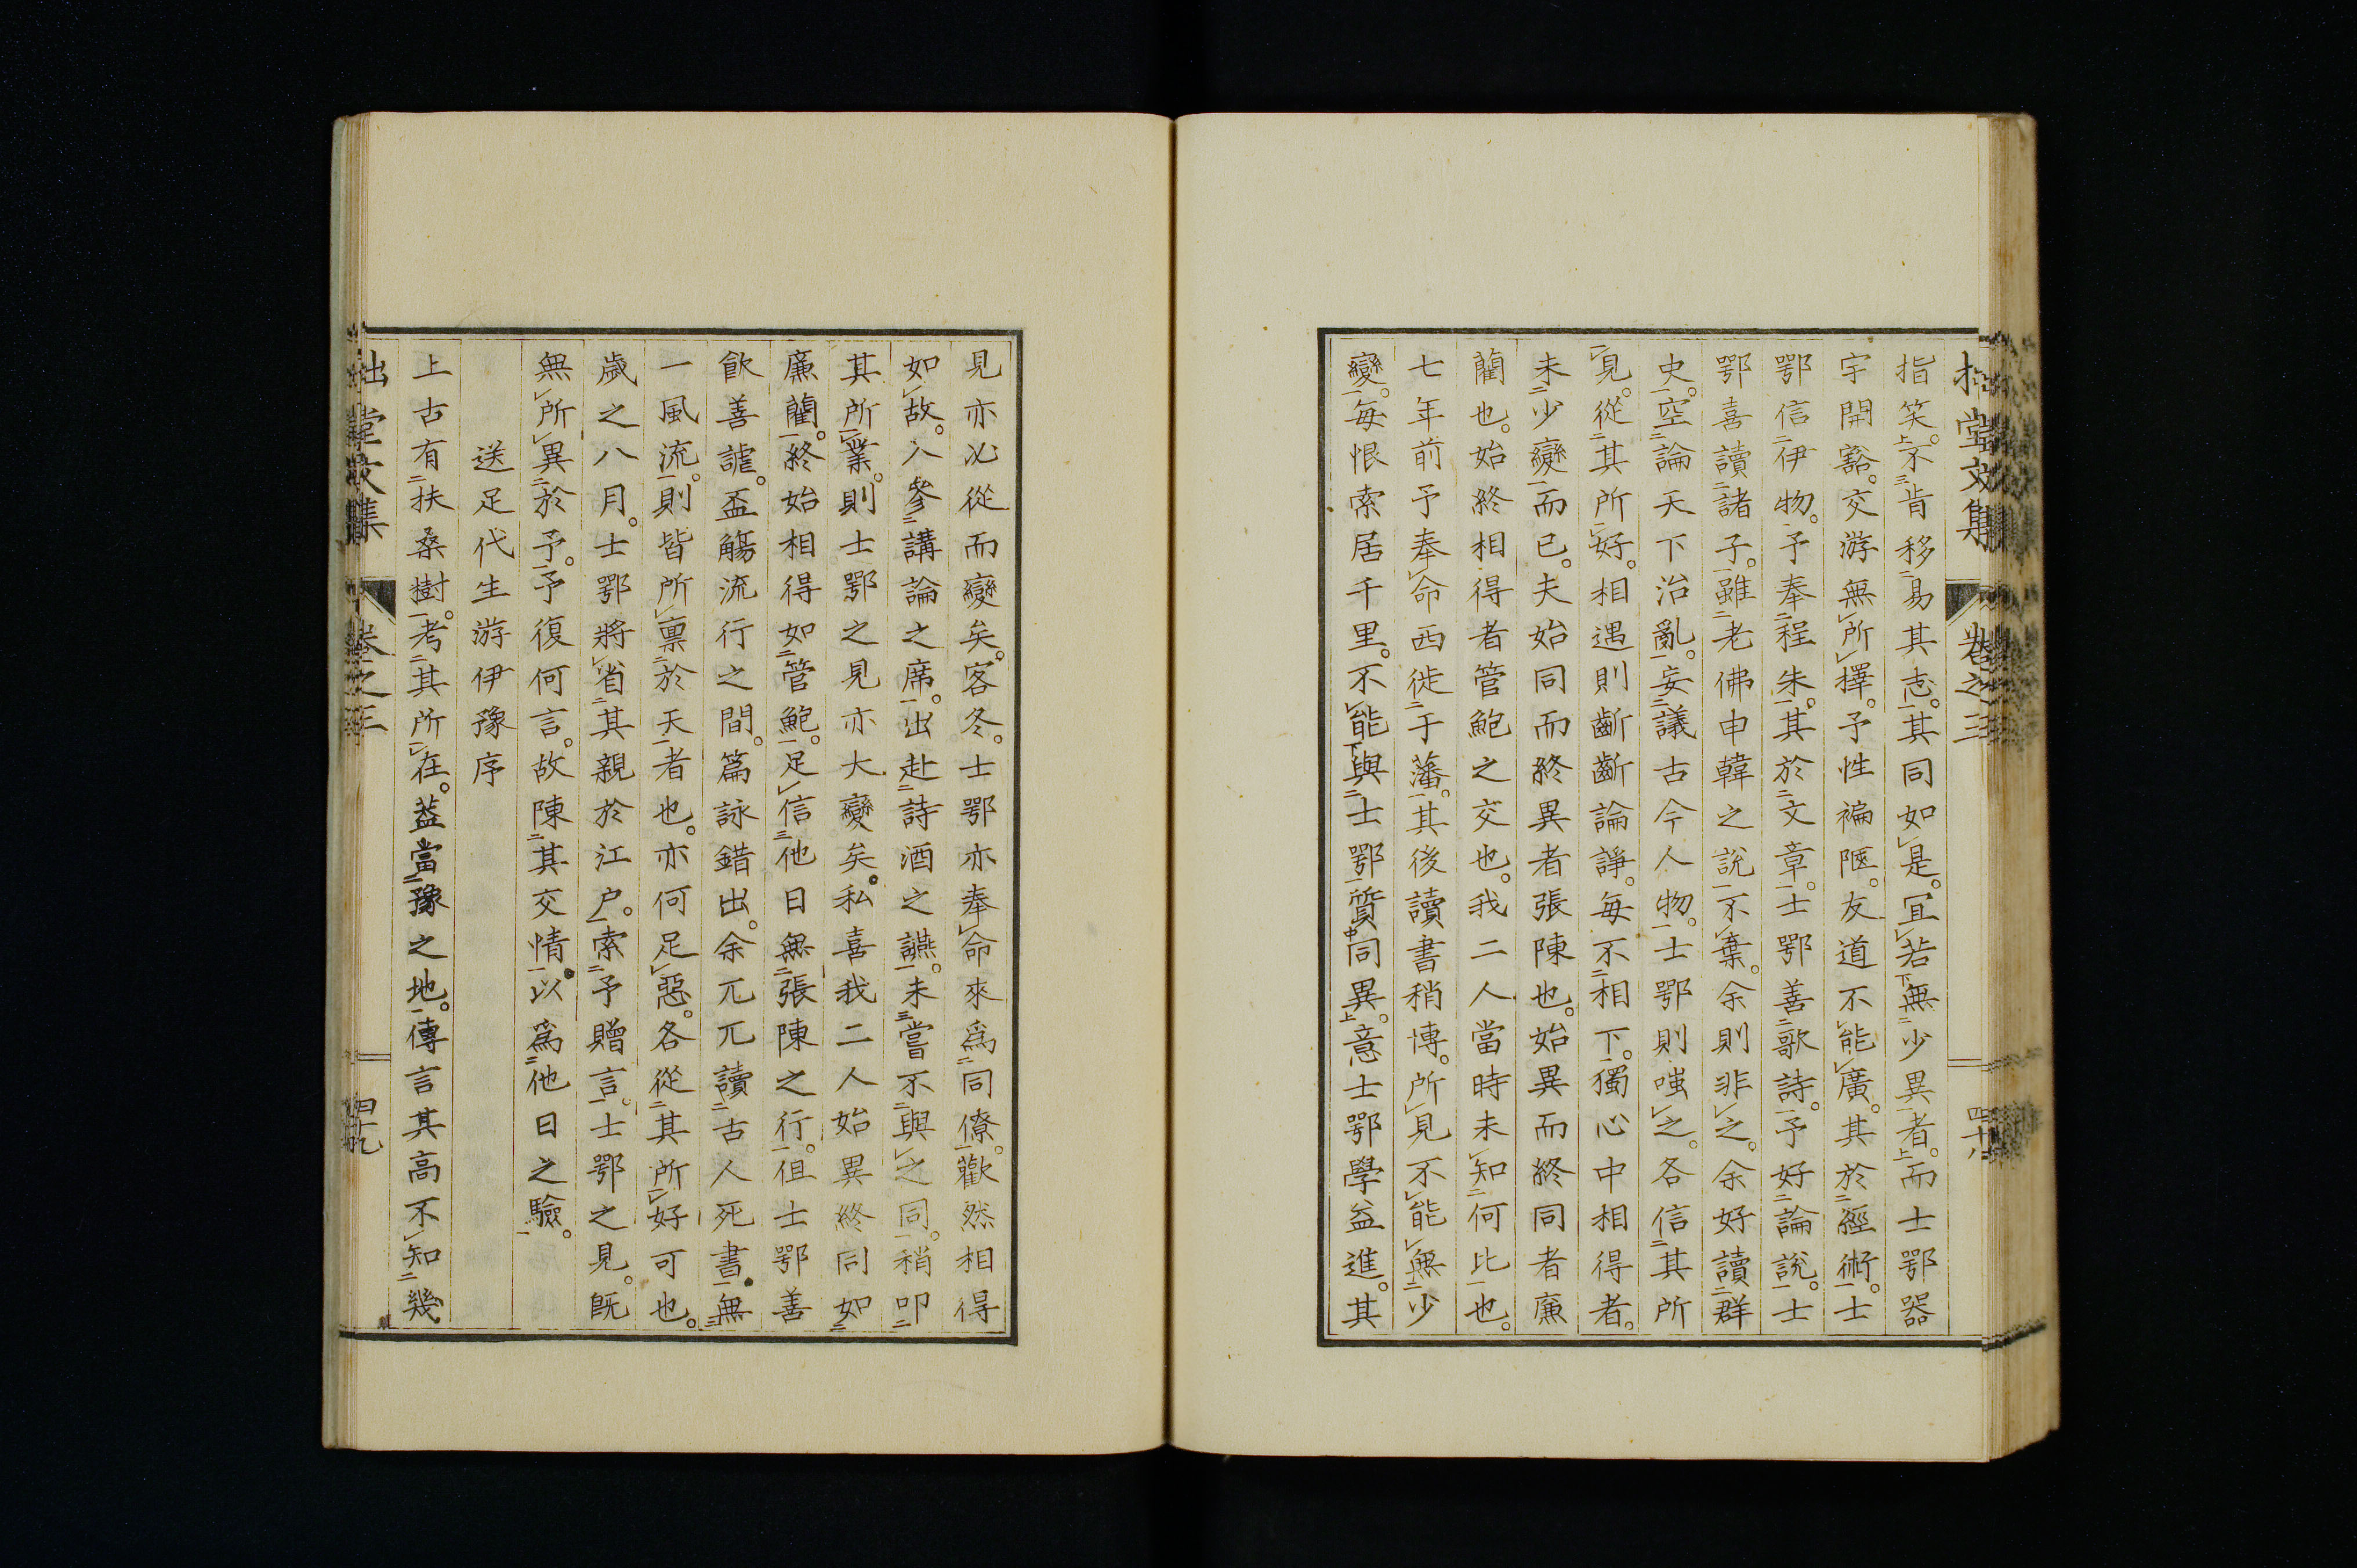 拙堂文集 卷之三 四十八
指笑。不肯移易其志。其同如是。冝若無少異者。而士鄂器
宇開豁。交游無所擇。予性褊陋。友道不能廣。其於經術。士
鄂信伊物。予奉程朱。其於文章。士鄂善歌詩。予好論説。士
鄂喜讀諸子。雖老佛申韓之說不棄。余則非之。余好讀群
史。空論天下治亂。妄議古今人物。士鄂則嗤之。各信其所
見。從其所好。相遇則齗齗論諍。每不相下。獨心中相得者。
未少變而已。夫始同而終異者張陳也。始異而終同者廉
藺也。始終相得者管鮑之交也。我二人當時未知何比也。
七年前予奉命西徙于藩。其後讀書稍博。所見不能無少
變。每恨索居千里。不能與士鄂質同異。意士鄂學益進。其
見亦必從而變矣。客冬。士鄂亦奉命來爲同僚。歡然相得
如故。入參講論之席。出赴詩酒之讌。未嘗不與之同。稍叩
其所業。則士鄂之見亦大變矣。私喜我二人始異終同如
廉藺。終始相得如管鮑。足信他日無張陳之行。但士鄂善
飲善謔。盃觴流行之間。篇詠錯出。余兀兀讀古人死書。無
一風流。則皆所禀於天者也。亦何足惡。各從其所好可也。
歲之八月。士鄂將省其親於江户。索予贈言。士鄂之見。旣
無所異於予。予復何言。故陳其交情。以爲他日之驗。
送足代生游伊豫序
上古有扶桑樹。考其所在。葢當豫之地。傳言其高不知幾
拙堂文集 卷之三 四十九